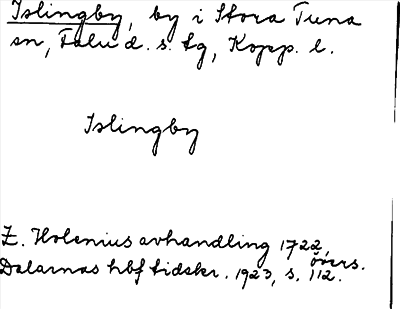 Islingby, by i Stora Tuna
sn, Falu d. s. tg, Kopp. l.
Islingby
Z. Holenius avhandling 1722,
övers.
Dalarnas hbf tidskr. 1923, s. 112.